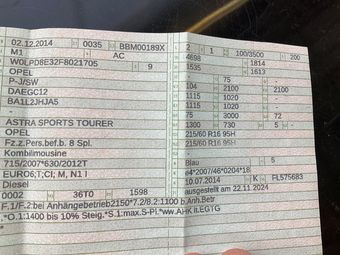 02.12.2014 0035 BBM00189X
M1 AC
W0LPD8E32F8021705 9
OPEL
P-J/SW
DAEGC12
BA1L2JHJA5
-
ASTRA SPORTS TOURER
OPEL
Fz.z.Pers.bef.b. 8 Spl.
Kombilimousine
715/2007*630/2012T
EURO6;T;CI; M, N1 I
Diesel
0002 36T0 1598
2 1 100/3500 200
4698 1814
1535 1613
- 75 -
104 2100 2100
1115 1020 -
1115 1020 -
75 3000 72
1300 730 5 -
215/60 R16 95H
215/60 R16 95H
-
Blau 5
e4*2007/46*0204*18
10.07.2014 K FL575683
ausgestellt am 22.11.2024
F.1/F.2:bei Anhängebetrieb2150*7.2/8.2:1100 b.Anh.Betr
.*O.1:1400 bis 10% Steig.*S.1:max.5-Pl.*ww.AHK lt.EGTG